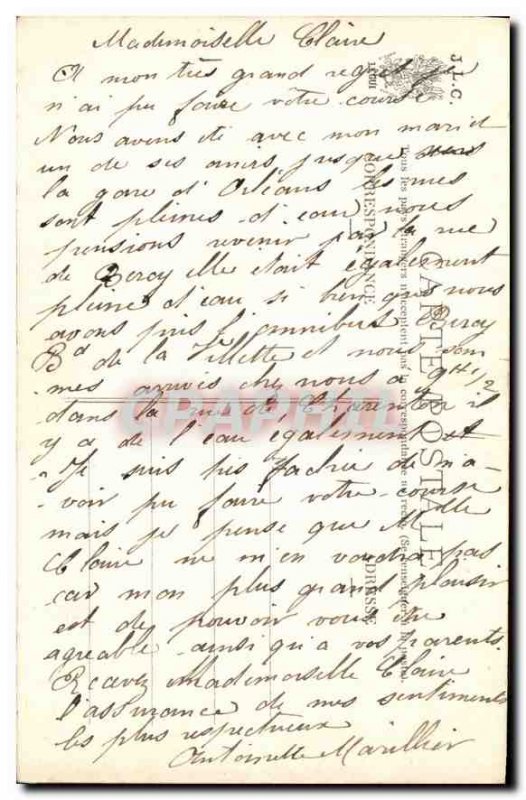 Mademoiselle Claire
A mon très grand regret je
n'ai pu faire votre course
Nous avons été avec mon mari et
un de ses amis jusque
la gare d'Orléans les rues
sont pleines d'eau nous
pensions revenir par la rue
de Bercy elle était également
pleine d'eau si bien que nous
avons pris l'omnibus Bercy
Bd de la Villette et nous som
mes arrivés chez nous à 9H 1/2
dans la rue de Charenton il
y a de l'eau également et
Je suis très fachée de n'a-
voir pu faire votre course
mais je pense que Melle
Claire ne m'en voudra pas
car mon plus grand plaisir
est de pouvoir vous être
agreable ainsi qu'a vos parents.
Recevez Mademoiselle Claire
l'assurance de mes sentiments
les plus respectueux
Antoinette Marillier
J.L.C.
CARTE POSTALE
CORRESPONDANCE
ADRESSE
CPRPHIL